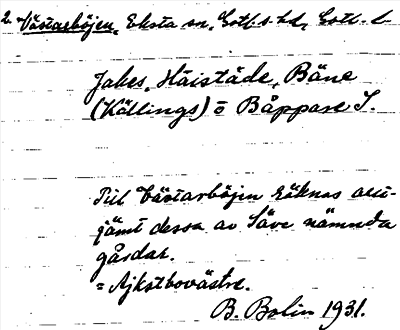 2. Västarböjen, Eksta sn, Gotl. s. hd, Gotl. l.
Jakes, Häistäde, Bäne
(Källings) o Båppare I.
Till Västarböjen räknas allt-
jämt dessa av Säve nämnda
gårdar.
= Ajkstbovästre.
B. Bolin 1931.